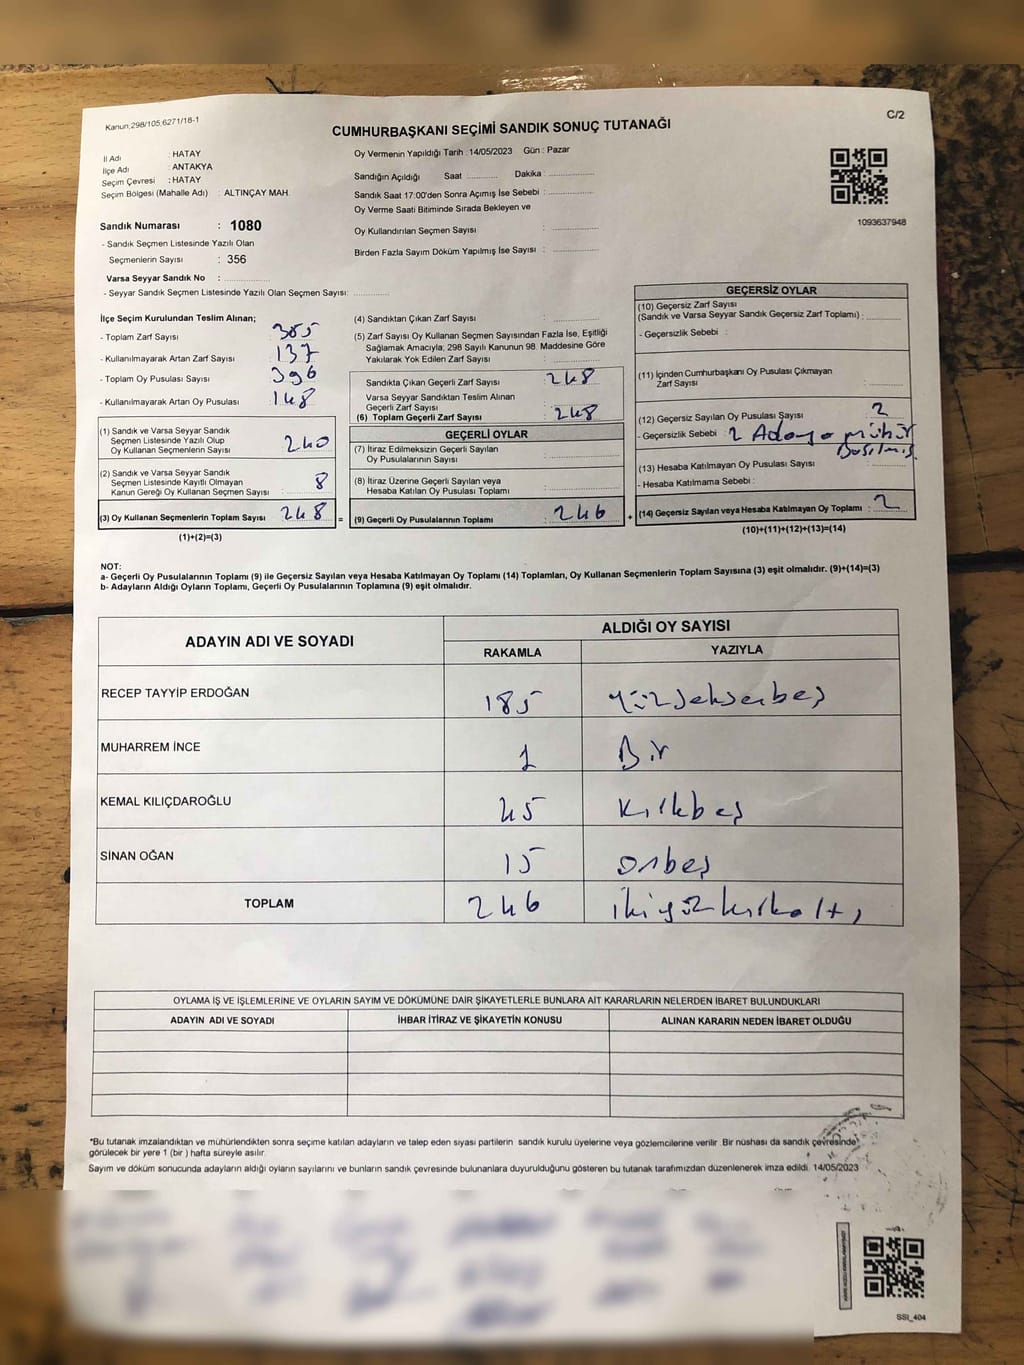 Kanun;298/105,6271/18-1
C/2
CUMHURBAŞKANI SEÇİMİ SANDIK SONUÇ TUTANAĞI
İl Adı : HATAY
İlçe Adı : ANTAKYA
Seçim Çevresi : HATAY
Seçim Bölgesi (Mahalle Adı) : ALTINÇAY MAH.
Sandık Numarası : 1080
- Sandık Seçmen Listesinde Yazılı Olan
Seçmenlerin Sayısı : 356
Varsa Seyyar Sandık No :
- Seyyar Sandık Seçmen Listesinde Yazılı Olan Seçmen Sayısı:
Oy Vermenin Yapıldığı Tarih : 14/05/2023 Gün : Pazar
Sandığın Açıldığı Saat Dakika
Sandık Saat 17:00'den Sonra Açımış İse Sebebi :
Oy Verme Saati Bitiminde Sırada Bekleyen ve
Oy Kullandırılan Seçmen Sayısı :
Birden Fazla Sayım Döküm Yapılmış İse Sayısı :
1093637948
İlçe Seçim Kurulundan Teslim Alınan;
- Toplam Zarf Sayısı 385
- Kullanılmayarak Artan Zarf Sayısı 137
- Toplam Oy Pusulası Sayısı 396
- Kullanılmayarak Artan Oy Pusulası 148
(1) Sandık ve Varsa Seyyar Sandık
Seçmen Listesinde Yazılı Olup
Oy Kullanan Seçmenlerin Sayısı 240
(2) Sandık ve Varsa Seyyar Sandık
Seçmen Listesinde Kayıtlı Olmayan
Kanun Gereği Oy Kullanan Seçmen Sayısı : 8
(3) Oy Kullanan Seçmenlerin Toplam Sayısı 248 =
(1)+(2)=(3)
(4) Sandıktan Çıkan Zarf Sayısı :
(5) Zarf Sayısı Oy Kullanan Seçmen Sayısından Fazla İse, Eşitliği
Sağlamak Amacıyla; 298 Sayılı Kanunun 98. Maddesine Göre
Yakılarak Yok Edilen Zarf Sayısı :
Sandıkta Çıkan Geçerli Zarf Sayısı : 248
Varsa Seyyar Sandıktan Teslim Alınan
Geçerli Zarf Sayısı
(6) Toplam Geçerli Zarf Sayısı : 248
GEÇERLİ OYLAR
(7) İtiraz Edilmeksizin Geçerli Sayılan
Oy Pusulalarının Sayısı :
(8) İtiraz Üzerine Geçerli Sayılan veya
Hesaba Katılan Oy Pusulası Toplamı :
(9) Geçerli Oy Pusulalarının Toplamı : 246 +
GEÇERSİZ OYLAR
(10) Geçersiz Zarf Sayısı
(Sandık ve Varsa Seyyar Sandık Geçersiz Zarf Toplamı) :
- Geçersizlik Sebebi :
(11) İçinden Cumhurbaşkanı Oy Pusulası Çıkmayan
Zarf Sayısı :
(12) Geçersiz Sayılan Oy Pusulası Sayısı : 2
- Geçersizlik Sebebi : 2 Adaya mühür
Basılmış.
(13) Hesaba Katılmayan Oy Pusulası Sayısı :
- Hesaba Katılmama Sebebi :
(14) Geçersiz Sayılan veya Hesaba Katılmayan Oy Toplamı : 2
(10)+(11)+(12)+(13)=(14)
NOT:
a- Geçerli Oy Pusulalarının Toplamı (9) ile Geçersiz Sayılan veya Hesaba Katılmayan Oy Toplamı (14) Toplamları, Oy Kullanan Seçmenlerin Toplam Sayısına (3) eşit olmalıdır. (9)+(14)=(3)
b- Adayların Aldığı Oyların Toplamı, Geçerli Oy Pusulalarının Toplamına (9) eşit olmalıdır.
ADAYIN ADI VE SOYADI
ALDIĞI OY SAYISI
RAKAMLA YAZIYLA
RECEP TAYYİP ERDOĞAN 185 Yüzseksenbeş
MUHARREM İNCE 1 Bir
KEMAL KILIÇDAROĞLU 45 Kırkbeş
SİNAN OĞAN 15 onbeş
TOPLAM 246 ikiyüzkırkaltı
OYLAMA İŞ VE İŞLEMLERİNE VE OYLARIN SAYIM VE DÖKÜMÜNE DAİR ŞİKAYETLERLE BUNLARA AİT KARARLARIN NELERDEN İBARET BULUNDUKLARI
ADAYIN ADI VE SOYADI İHBAR İTİRAZ VE ŞİKAYETİN KONUSU ALINAN KARARIN NEDEN İBARET OLDUĞU
*Bu tutanak imzalandıktan ve mühürlendikten sonra seçime katılan adayların ve talep eden siyasi partilerin sandık kurulu üyelerine veya gözlemcilerine verilir. Bir nüshası da sandık çevresinde
görülecek bir yere 1 (bir) hafta süreyle asılır.
Sayım ve döküm sonucunda adayların aldığı oyların sayılarını ve bunların sandık çevresinde bulunanlara duyurulduğunu gösteren bu tutanak tarafımızdan düzenlenerek imza edildi. 14/05/2023
SSI_404